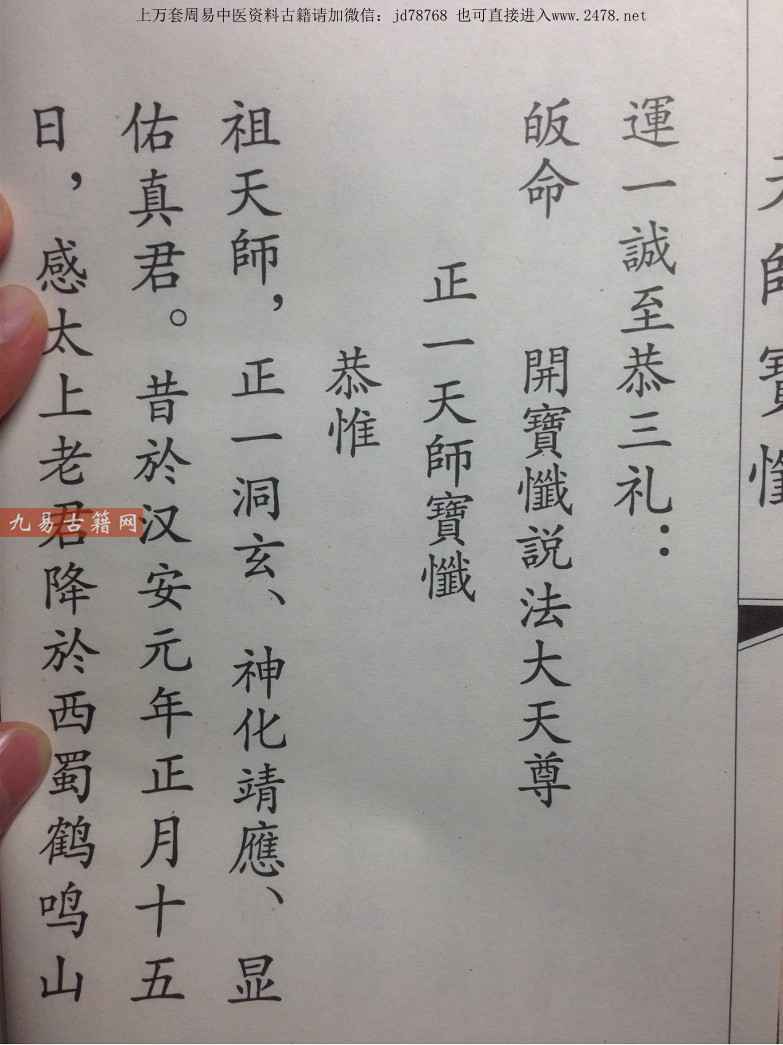 上万套周易中医资料古籍请加微信：jd78768 也可直接进入www.2478.net
天師寶懺
運一誠至恭三礼：
皈命　開寶懺説法大天尊
正一天師寶懺
恭惟
祖天師，正一洞玄、神化靖應、显
佑真君。昔於汉安元年正月十五
日，感太上老君降於西蜀鹤鸣山
九易古籍网